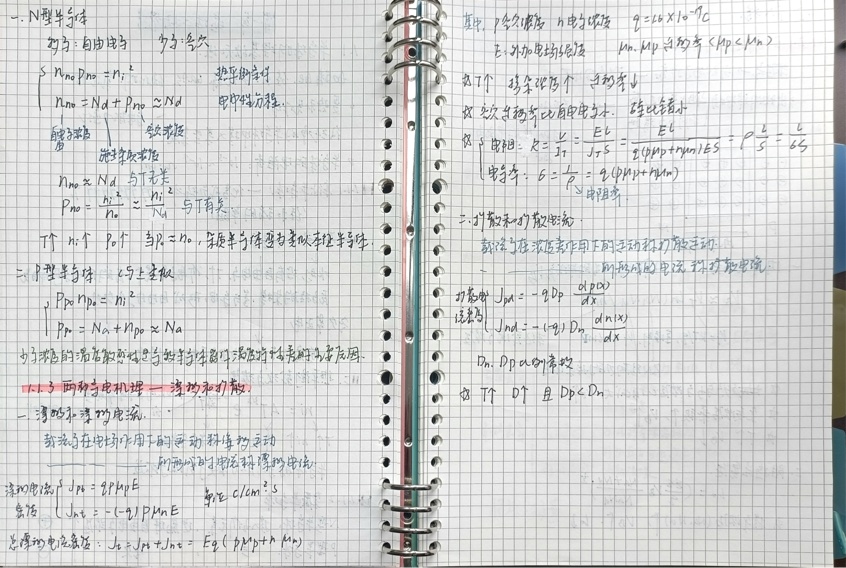 一. N型半导体
多子: 自由电子 少子: 空穴
n_no p_no = n_i² 热平衡条件
n_no = N_d + p_no ≈ N_d 电中性方程.
自由电子浓度 施主杂质浓度 空穴浓度
n_no ≈ N_d 与T无关
p_no = n_i²/n_o ≈ n_i²/N_d 与T有关
T↑ n_i↑ p_o↑ 当p_o≈n_o, 杂质半导体变为类似本征半导体.
二. P型半导体 (与上类似
p_po n_po = n_i²
p_po = N_a + n_po ≈ N_a
少子浓度的温度敏感性是导致半导体器件温度特性差的主要原因.
1.1.3 两种导电机理 — 漂移和扩散.
一. 漂移和漂移电流.
载流子在电场作用下的运动称漂移运动
所形成的电流称漂移电流
漂移电流密度 J_pt = qpμ_pE 单位 c/cm²s
J_nt = -(-q)pμ_nE
总漂移电流密度: J_t = J_pt + J_nt = Eq(pμ_p + nμ_n)
其中, p空穴浓度 n电子浓度 q=1.6×10⁻¹⁹C
E: 外加电场强度 μ_n. μ_p 迁移率 (μ_p < μ_n)
☆ T↑ 掺杂浓度↑ 迁移率↓
☆ 空穴迁移率比自由电子小. 硅比锗小
☆ 电阻: R = V/I_T = El/J_TS = El/q(pμ_p+nμ_n)ES = ρ l/S = l/σS
电导率: σ = 1/ρ = q(pμ_p+nμ_n)
电阻率.
二. 扩散和扩散电流.
载流子在浓度差作用下的运动称扩散运动.
所形成的电流称扩散电流
扩散电流密度 J_pd = -qD_p dp(x)/dx
J_nd = -(-q)D_n dn(x)/dx
D_n. D_p 为比例常数
☆ T↑ D↑ 且 D_p < D_n